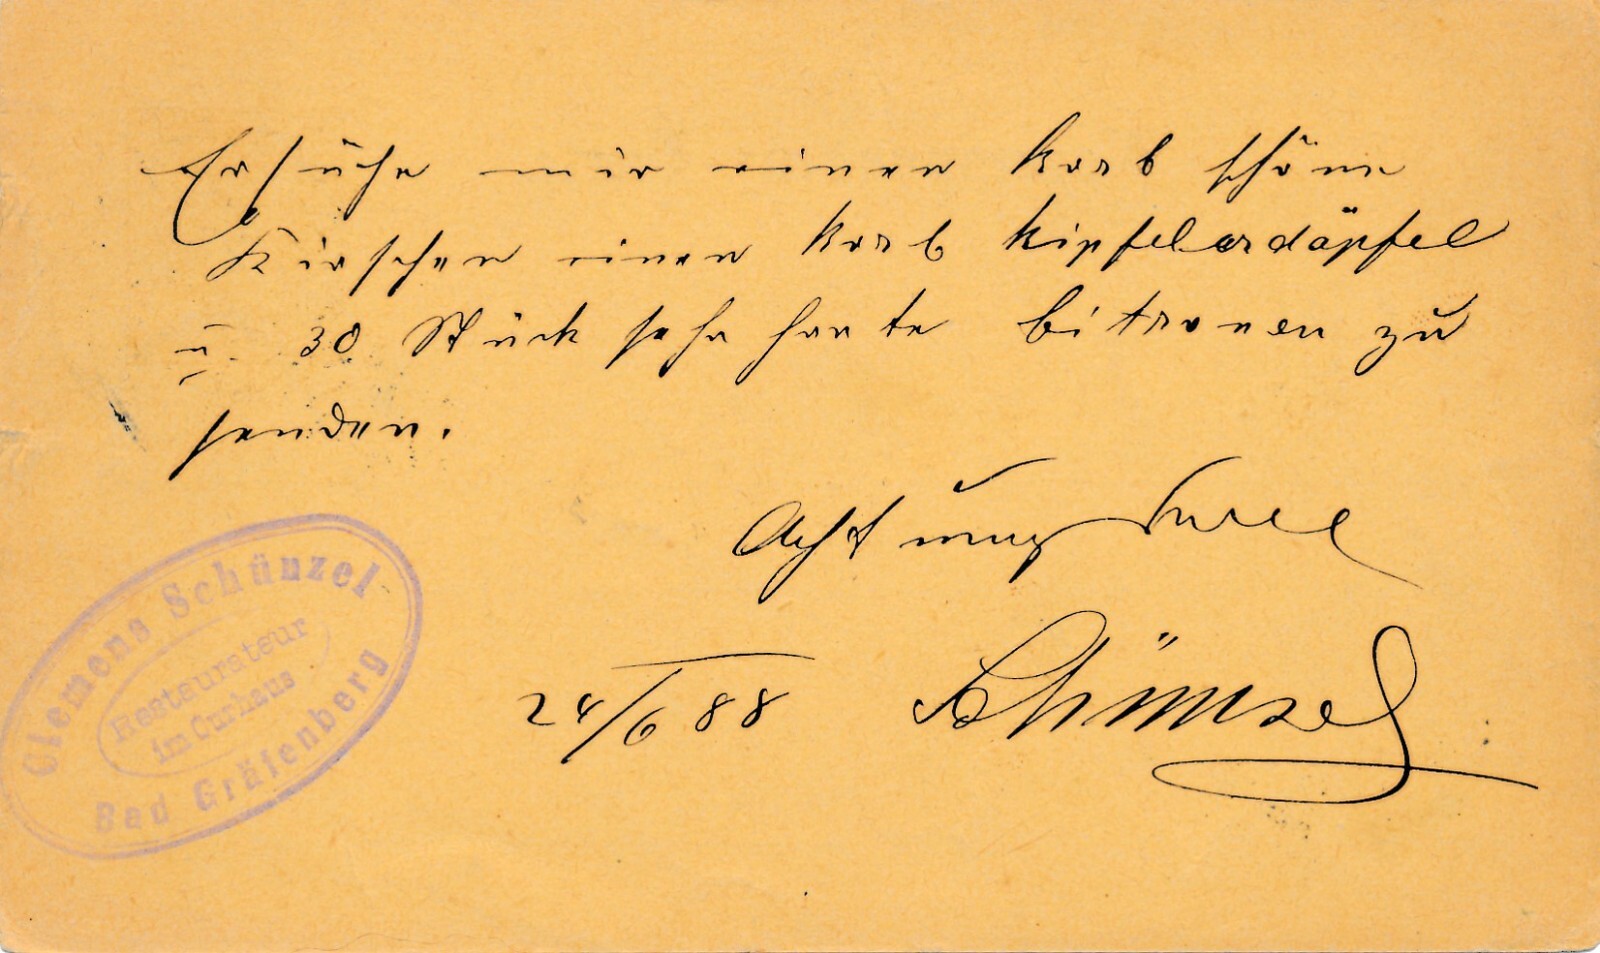 Ersuche mir einen Korb schöne
Kirschen einen Korb Kipfelerdäpfel
u. 30 Stück sehr harte Citronen zu
senden.
Achtungsvoll
24/6 88 Schünzel
Clemens Schünzel
Restaurateur
im Curhaus
Bad Gräfenberg